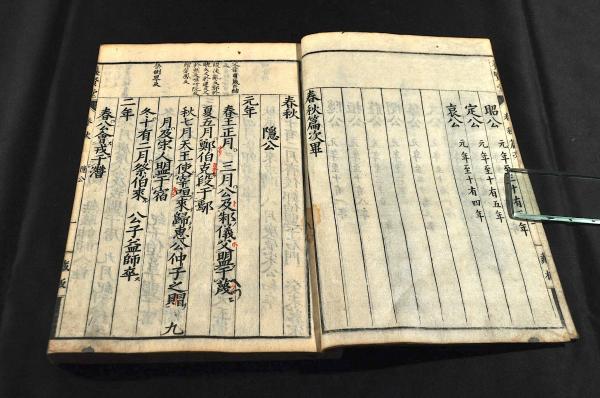 昭公
元年
定公
元年至十有五年
哀公
元年至十有四年
春秋篇次畢
春秋
隱公
元年
春王正月 三月公及邾儀父盟于蔑
夏五月鄭伯克段于鄢
秋七月天王使宰咺來歸惠公仲子之賵 九
月及宋人盟于宿
冬十有二月祭伯來 公子益師卒
二年
春公會戎于潛